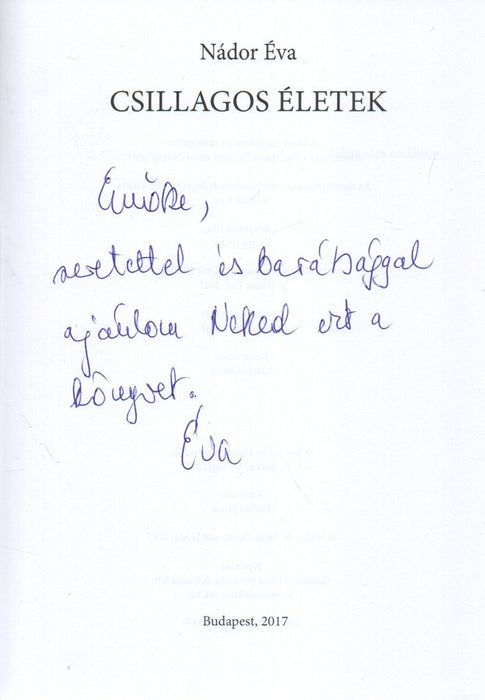 Nádor Éva
CSILLAGOS ÉLETEK
Emőke,
szeretettel és barátsággal
ajánlom Neked ezt a
könyvet.
Éva
Budapest, 2017